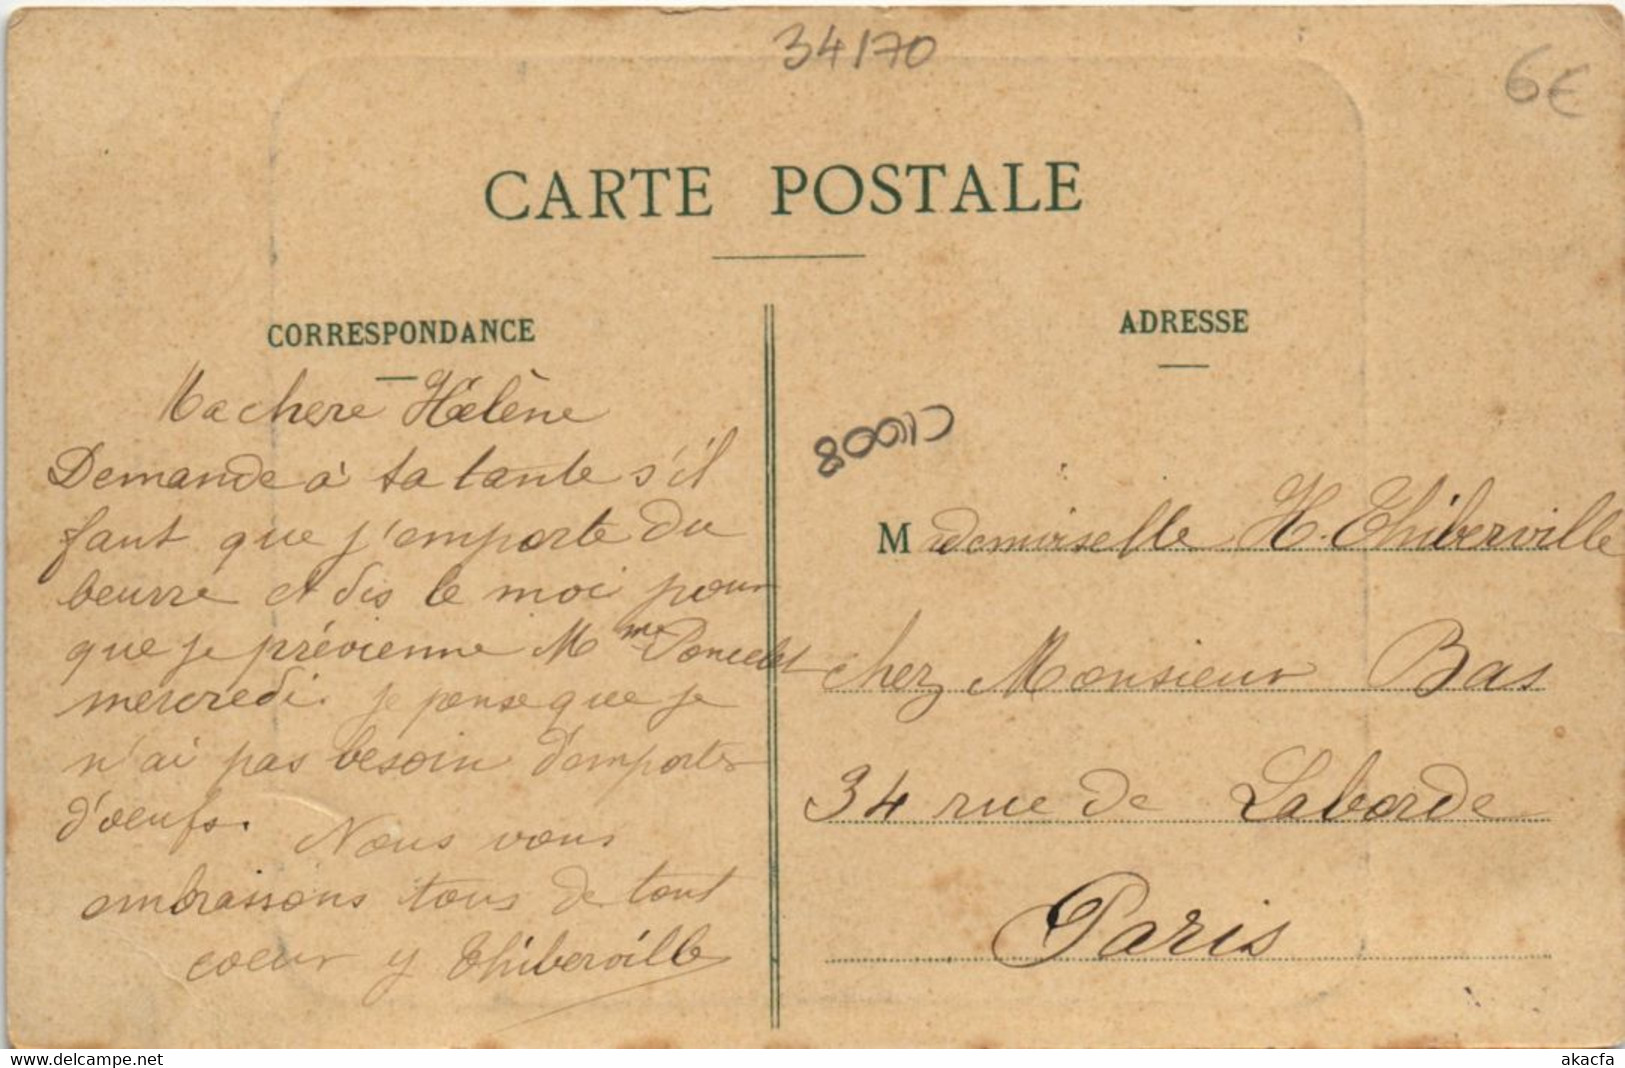 34170
6€
CARTE POSTALE
CORRESPONDANCE
Ma chere Hélène
Demande à ta tante s'il
faut que j'emporte du
beurre et dis le moi pour
que je prévienne Mme Poncelet
mercredi. je pense que je
n'ai pas besoin d'emporter
d'oeufs.
Nous vous
embrassons tous de tout
coeur y Thiberville
ADRESSE
Mademoiselle H. Thiberville
chez Monsieur Bas
34 rue de Laborde
Paris
www.delcampe.net
akacfa